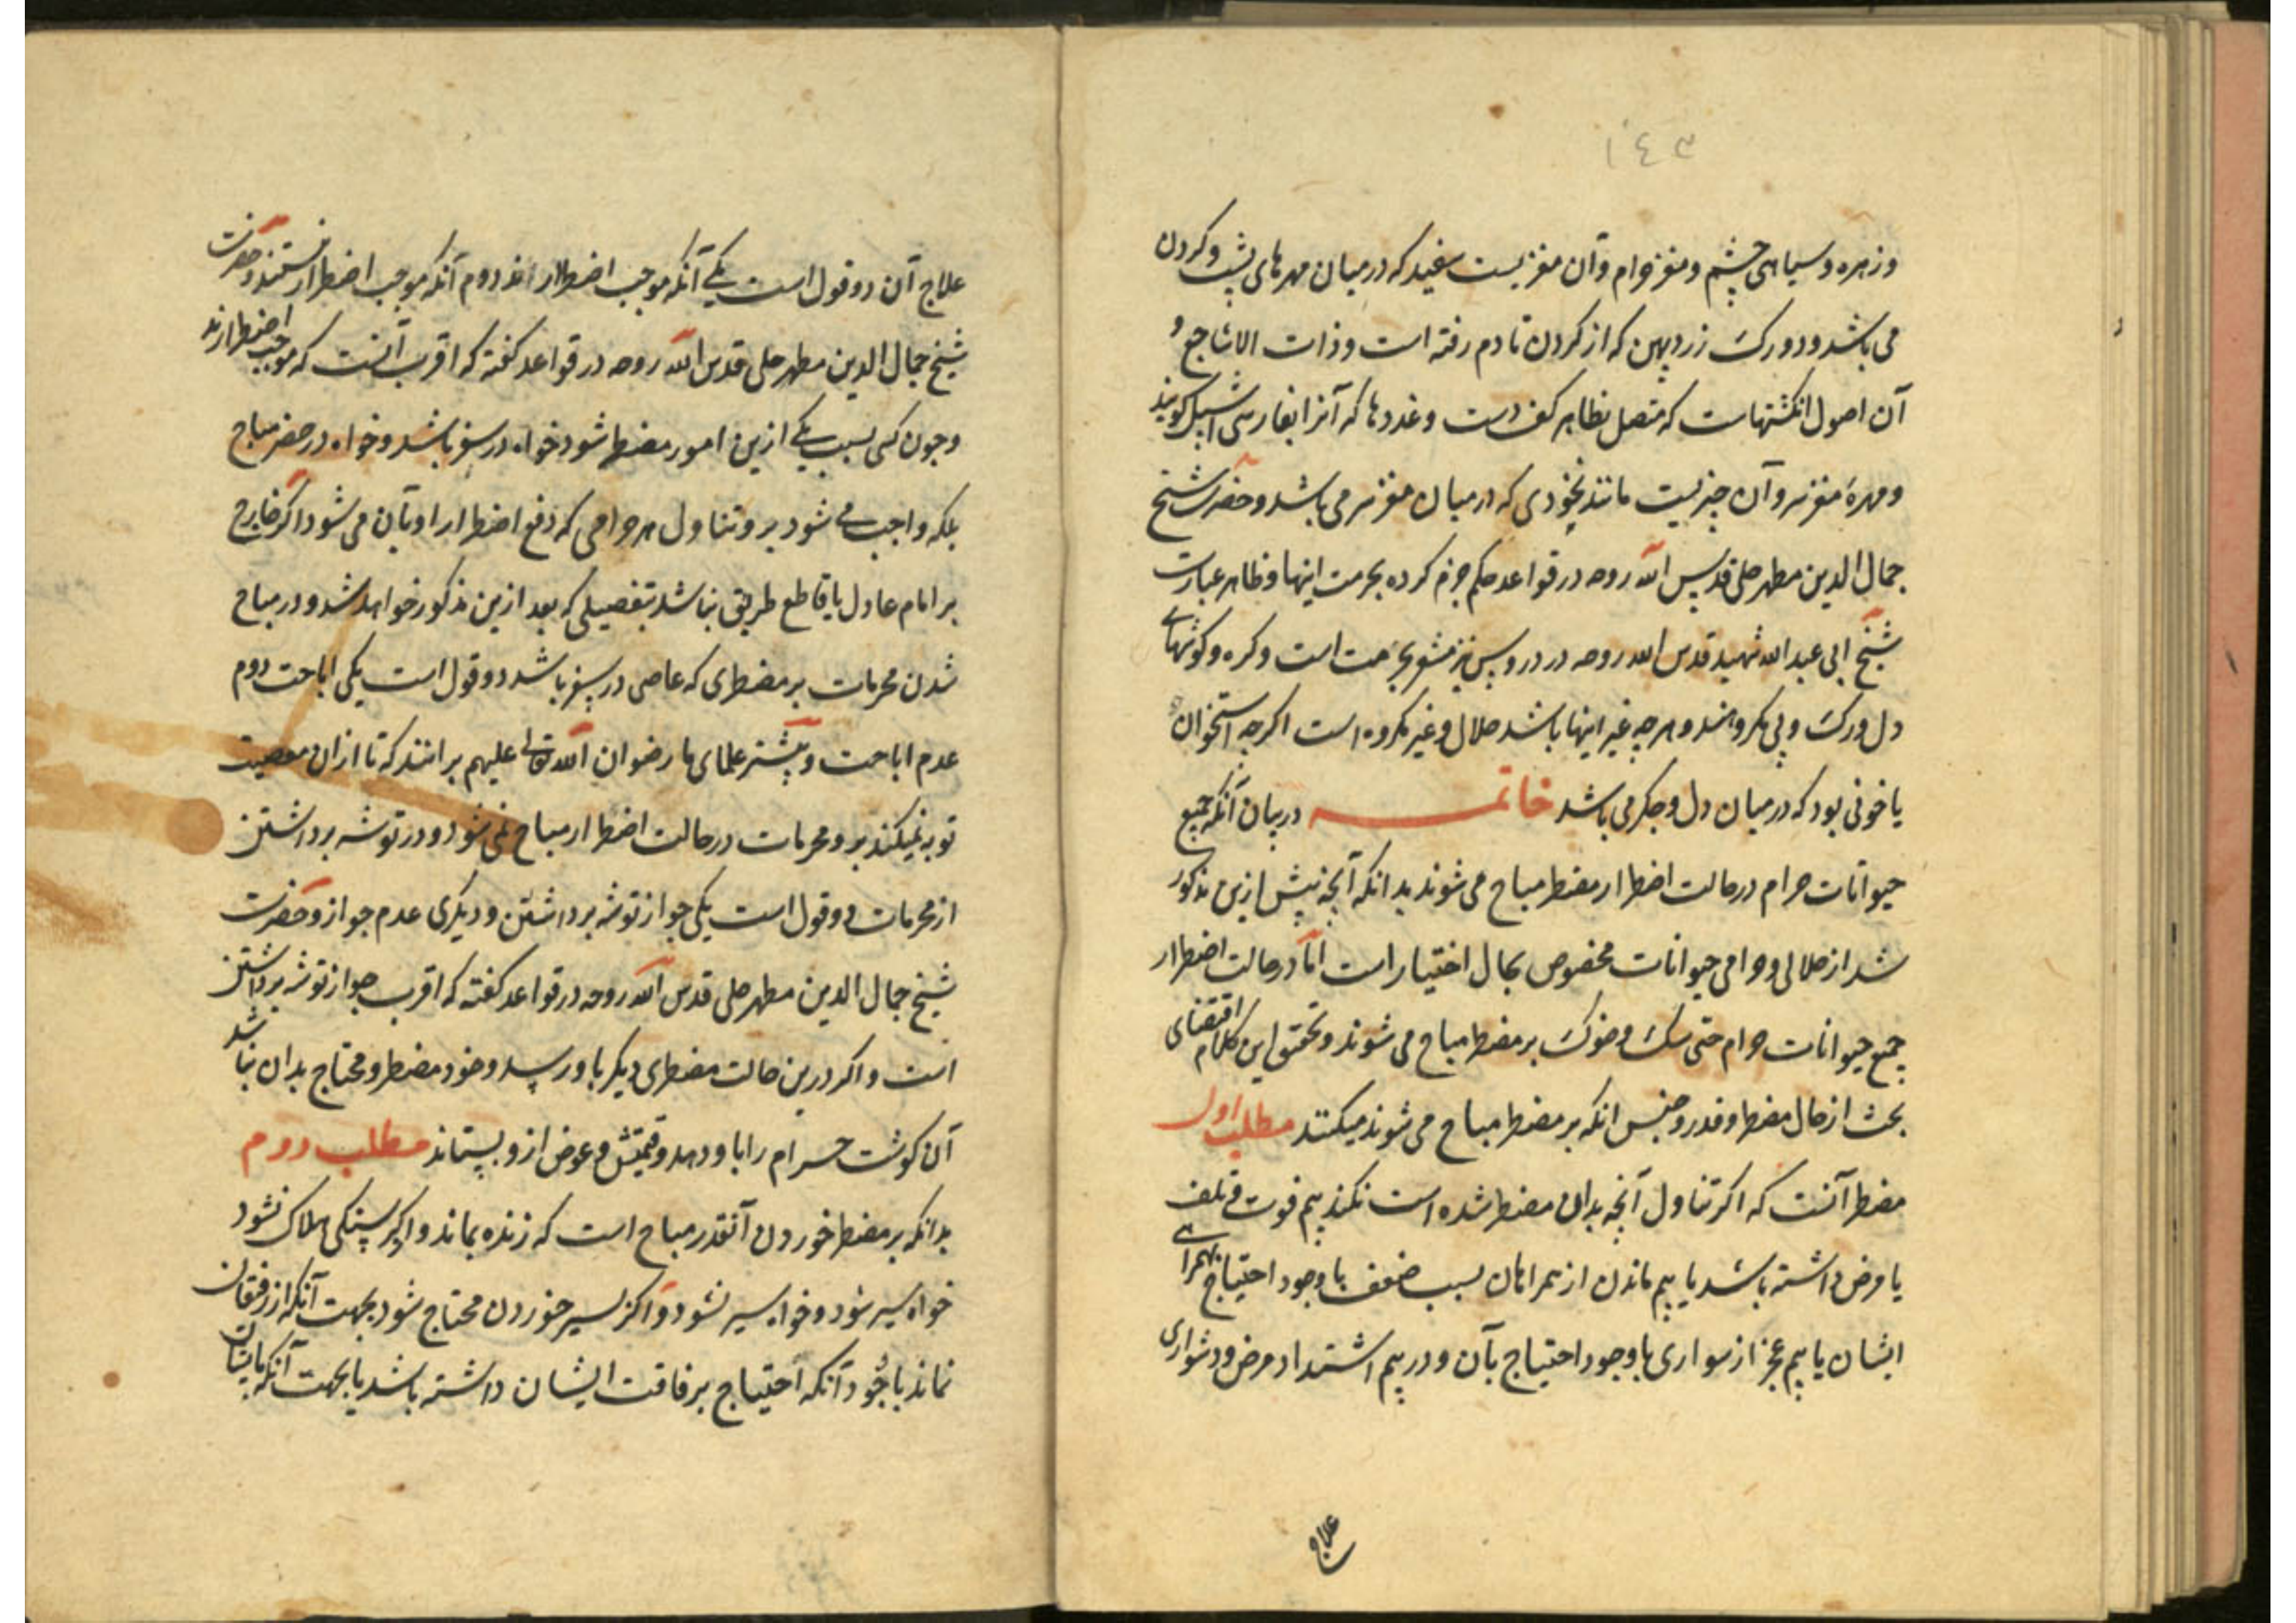 ١٤٣
وزهره و سیاهی چشم و مغز حرام و آن مغزیست سفید که در میان مهرهای پشت و کردن
می باشد و دو رک زرد پهن که از کردن تا دم رفته است و ذات الاشاجع و
آن اصول انکشتهاست که متصل بظاهر کف دست و غددها که آنرا بفارسی اشپل کویند
و مهرهٔ مغز سر و آن چیزیست مانند نخودی که در میان مغز سر می باشد و حضرت شیخ
جمال الدین مطهر حلی قدس الله روحه در قواعد حکم جزم کرده بحرمت اینها و ظاهر عبارت
شیخ ابی عبد الله شهید قدس الله روحه در دروس نیز مشعر بحرمت است و کرده و کوشهای
دل و رک و پی مکروهند و هر چه غیر اینها باشد حلال و غیر مکروه است اکرچه استخوان
یا خونی بود که در میان دل و جکر می باشد خاتمـه در بیان آنکه جمیع
حیوانات حرام در حالت اضطرار مضطر مباح می شوند بدانکه آنچه پیش ازین مذکور
شد از حلالی و حرامی حیوانات مخصوص بحال اختیار است امّا در حالت اضطرار
جمیع حیوانات حرام حتی سک و خوک بر مضطر مباح می شوند و تحقیق این کلام اقتضای
بحث از حال مضطر و قدر و جنس انکه بر مضطر مباح می شوند میکنند مطلب اول
مضطر آنست که اکر تناول آنچه بدان مضطر شده است نکند بیم فوت و تلف
یا مرض داشته باشد یا بیم ماندن از همراهان بسبب ضعف با وجود احتیاج بهمراهی
ایشان یا بیم عجز از سواری با وجود احتیاج بآن و در بیم اشتداد مرض و دشواری
علاج
علاج آن دو قول است یکی آنکه موجب اضطرار اند دوم آنکه موجب اضطرار نیستند و حضرت
شیخ جمال الدین مطهر حلی قدس الله روحه در قواعد کفته که اقرب آنست که موجب اضطرارند
و چون کسی بسبب یکی ازین امور مضطر شود خواه در سفر باشد و خواه در حضر مباح
بلکه واجب می شود برو تناول هر حرامی که دفع اضطرار او بآن می شود اکر خارج
بر امام عادل یا قاطع طریق نباشد بتفصیلی که بعد ازین مذکور خواهد شد و در مباح
شدن محرمات بر مضطری که عاصی در سفر باشد دو قول است یکی اباحت دوم
عدم اباحت و بیشتر علمای ما رضوان الله تعالی علیهم برانند که تا ازان معصیت
توبه نمیکند برو محرمات در حالت اضطرار مباح نمی شود و در توشه برداشتن
از محرمات دو قول است یکی جواز توشه برداشتن و دیکری عدم جواز و حضرت
شیخ جمال الدین مطهر حلی قدس الله روحه در قواعد کفته که اقرب جواز توشه برداشتن
است و اکر درین حالت مضطری دیکر باو رسد و خود مضطر و محتاج بدان نباشد
آن کوشت حرام را باو دهد و قیمتش و عوض ازو بستاند مطلب دوم
بدانکه بر مضطر خوردن آنقدر مباح است که زنده بماند و از کرسنکی هلاک نشود
خواه سیر شود و خواه سیر نشود و اکر بسیر خوردن محتاج شود بجهت آنکه از رفیقان
نماند با وجود آنکه احتیاج برفاقت ایشان داشته باشد یا بجهت آنکه بایشان